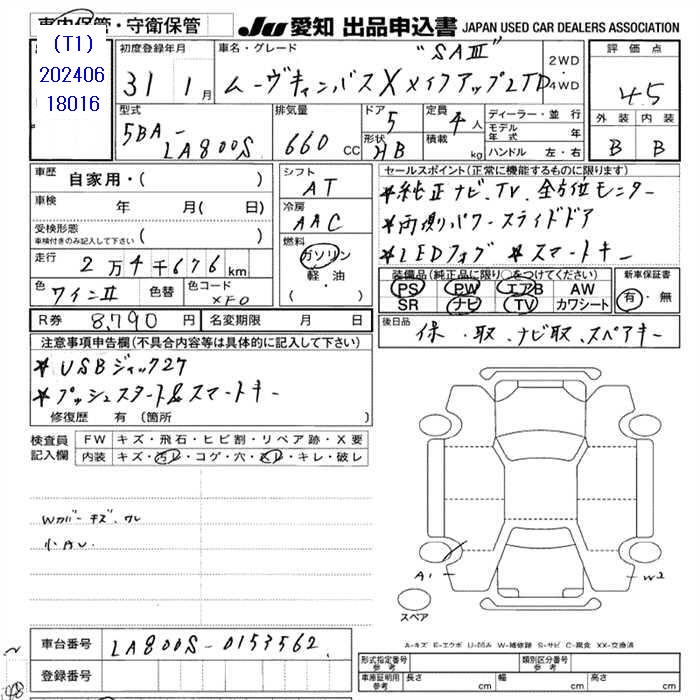 車内保管・守衛保管
JU 愛知 出品申込書 JAPAN USED CAR DEALERS ASSOCIATION
(T1)
202406
18016
初度登録年月
31 1月
車名・グレード
"SAⅢ"
ムーヴキャンバスXメイクアップLTD
2WD
4WD
評価点
4.5
外装 内装
B B
型式
5BA-
LA800S
排気量
660 CC
ドア 5
形状 HB
定員 4人
積載 kg
ディーラー・並行
モデル年式 年
ハンドル 左・右
車歴 自家用・( )
車検 年 月( 日)
受検形態
車検付きのみ記入して下さい ( )
走行 2万4千676km
色 ワインⅡ 色替 色コード XF0
シフト
AT
冷房
AAC
燃料
ガソリン
軽・油
( )
セールスポイント(正常に機能するものに限ります)
*純正ナビ、TV、全方位モニター
*両側パワースライドドア
*LEDフォグ *スマートキー
装備品(純正品に限り○をつけてください)
PS PW エアB AW
SR ナビ TV カワシート
新車保証書
有・無
R券 8,790円 名変期限 月 日
後日品
保・取、ナビ取、スペアキー
注意事項申告欄(不具合内容等は具体的に記入して下さい)
*USBジャック27
*プッシュスタート&スマートキー
修復歴 有 (箇所 )
検査員
記入欄
FW キズ・飛石・ヒビ割・リペア跡・X要
内装 キズ・汚レ・コゲ・穴・スレ・キレ・破レ
Wカバーキズ、ワレ
A1
W2
スペア
A-キズ E-エクボ U-凹み W-補修跡 S-サビ C-腐食 XX-交換済
車台番号 LA800S-0153562
登録番号
形式指定番号 参考
類別区分番号 参考
車庫証明用 参考 長さ cm 幅 cm 高さ cm